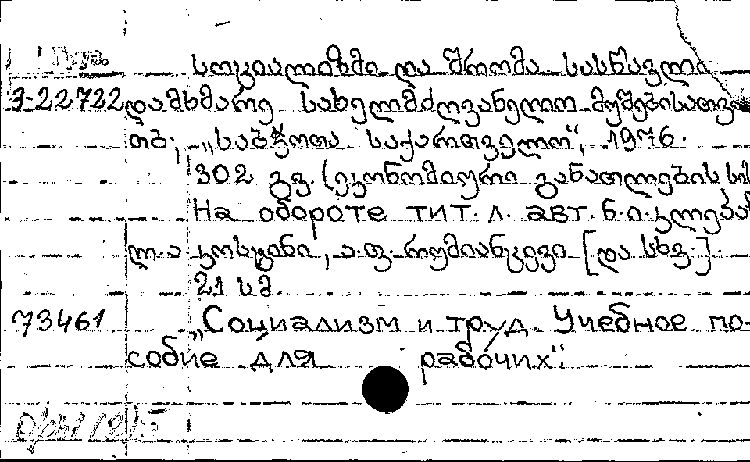 სოციალიზმი და შრომა სასწავლო
3-22722 დამხმარე სახელმძღვანელო მუშებისათვი
თბ., „საბჭოთა საქართველო“, 1976.
302 გვ. (ეკონომიური განათლების სის
На обороте тит. л. авт. ნ.ი. კლება
ლ.ა კოსტინი, ა.ფ. რუმიანცევი [და სხვ.].
21 სმ.
73461 „Социализм и труд. Учебное по-
собие для рабочих“.